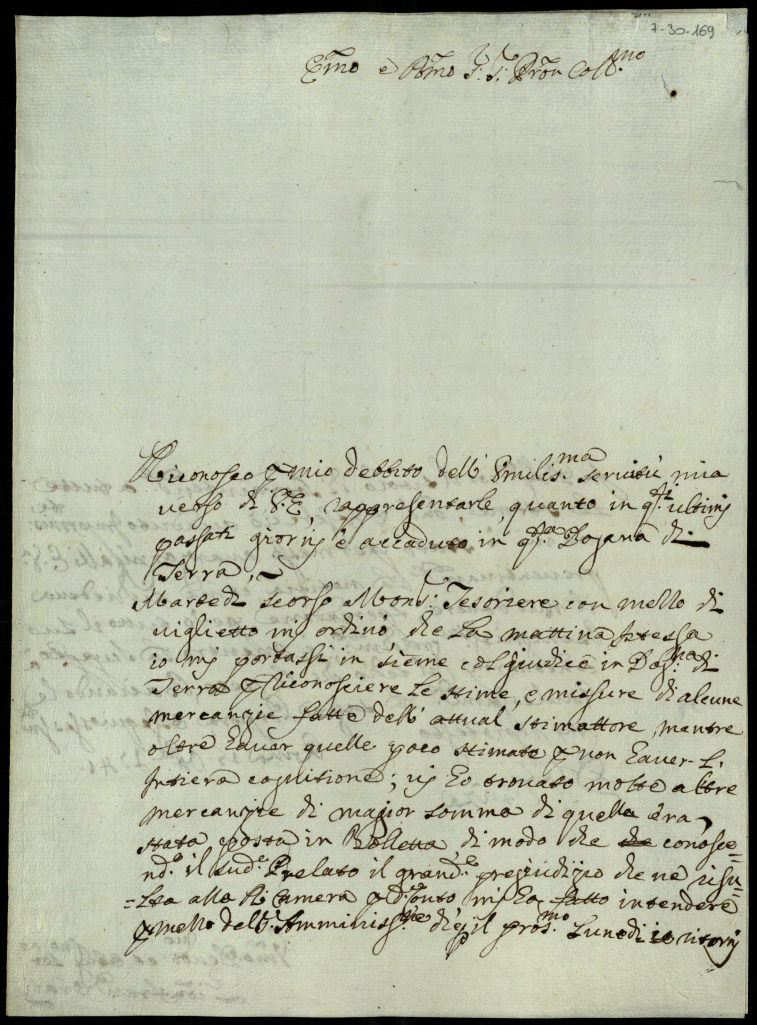 7-30-169
Emo è Rmo S.r S.r Prōn Coll.mo
Riconosco p mio debbito dell' Umilis.ma servitù mia
verso di V. E. rappresentarle quanto in q.sti ultimij
passati giornij è accaduto in q.sta Dogana di
Terra,
Martedì scorso Mons.r Tesoriere con mezzo di
viglietto mi ordinò che La mattina stessa
io mi portassi in sieme col giudice in Dog.na di
Terra p riconosciere Le stime, e missure di alcune
mercanzie fatte dell' attual stimattore, mentre
oltre haver quelle poco stimate p non haver L'
Intiera cognitione; vi ho trovato molte altre
mercanzie di magior somma di quella era
stata posta in Bolletta, di modo che che conosce=
nd.o il sud.o Prelato il grand.e prejudizio che ne risu=
=lta alla R. Camera p d.o conto mi ha fatto intendere
p mezzo dell' Amminis che il pros.mo Lunedì io ritornij